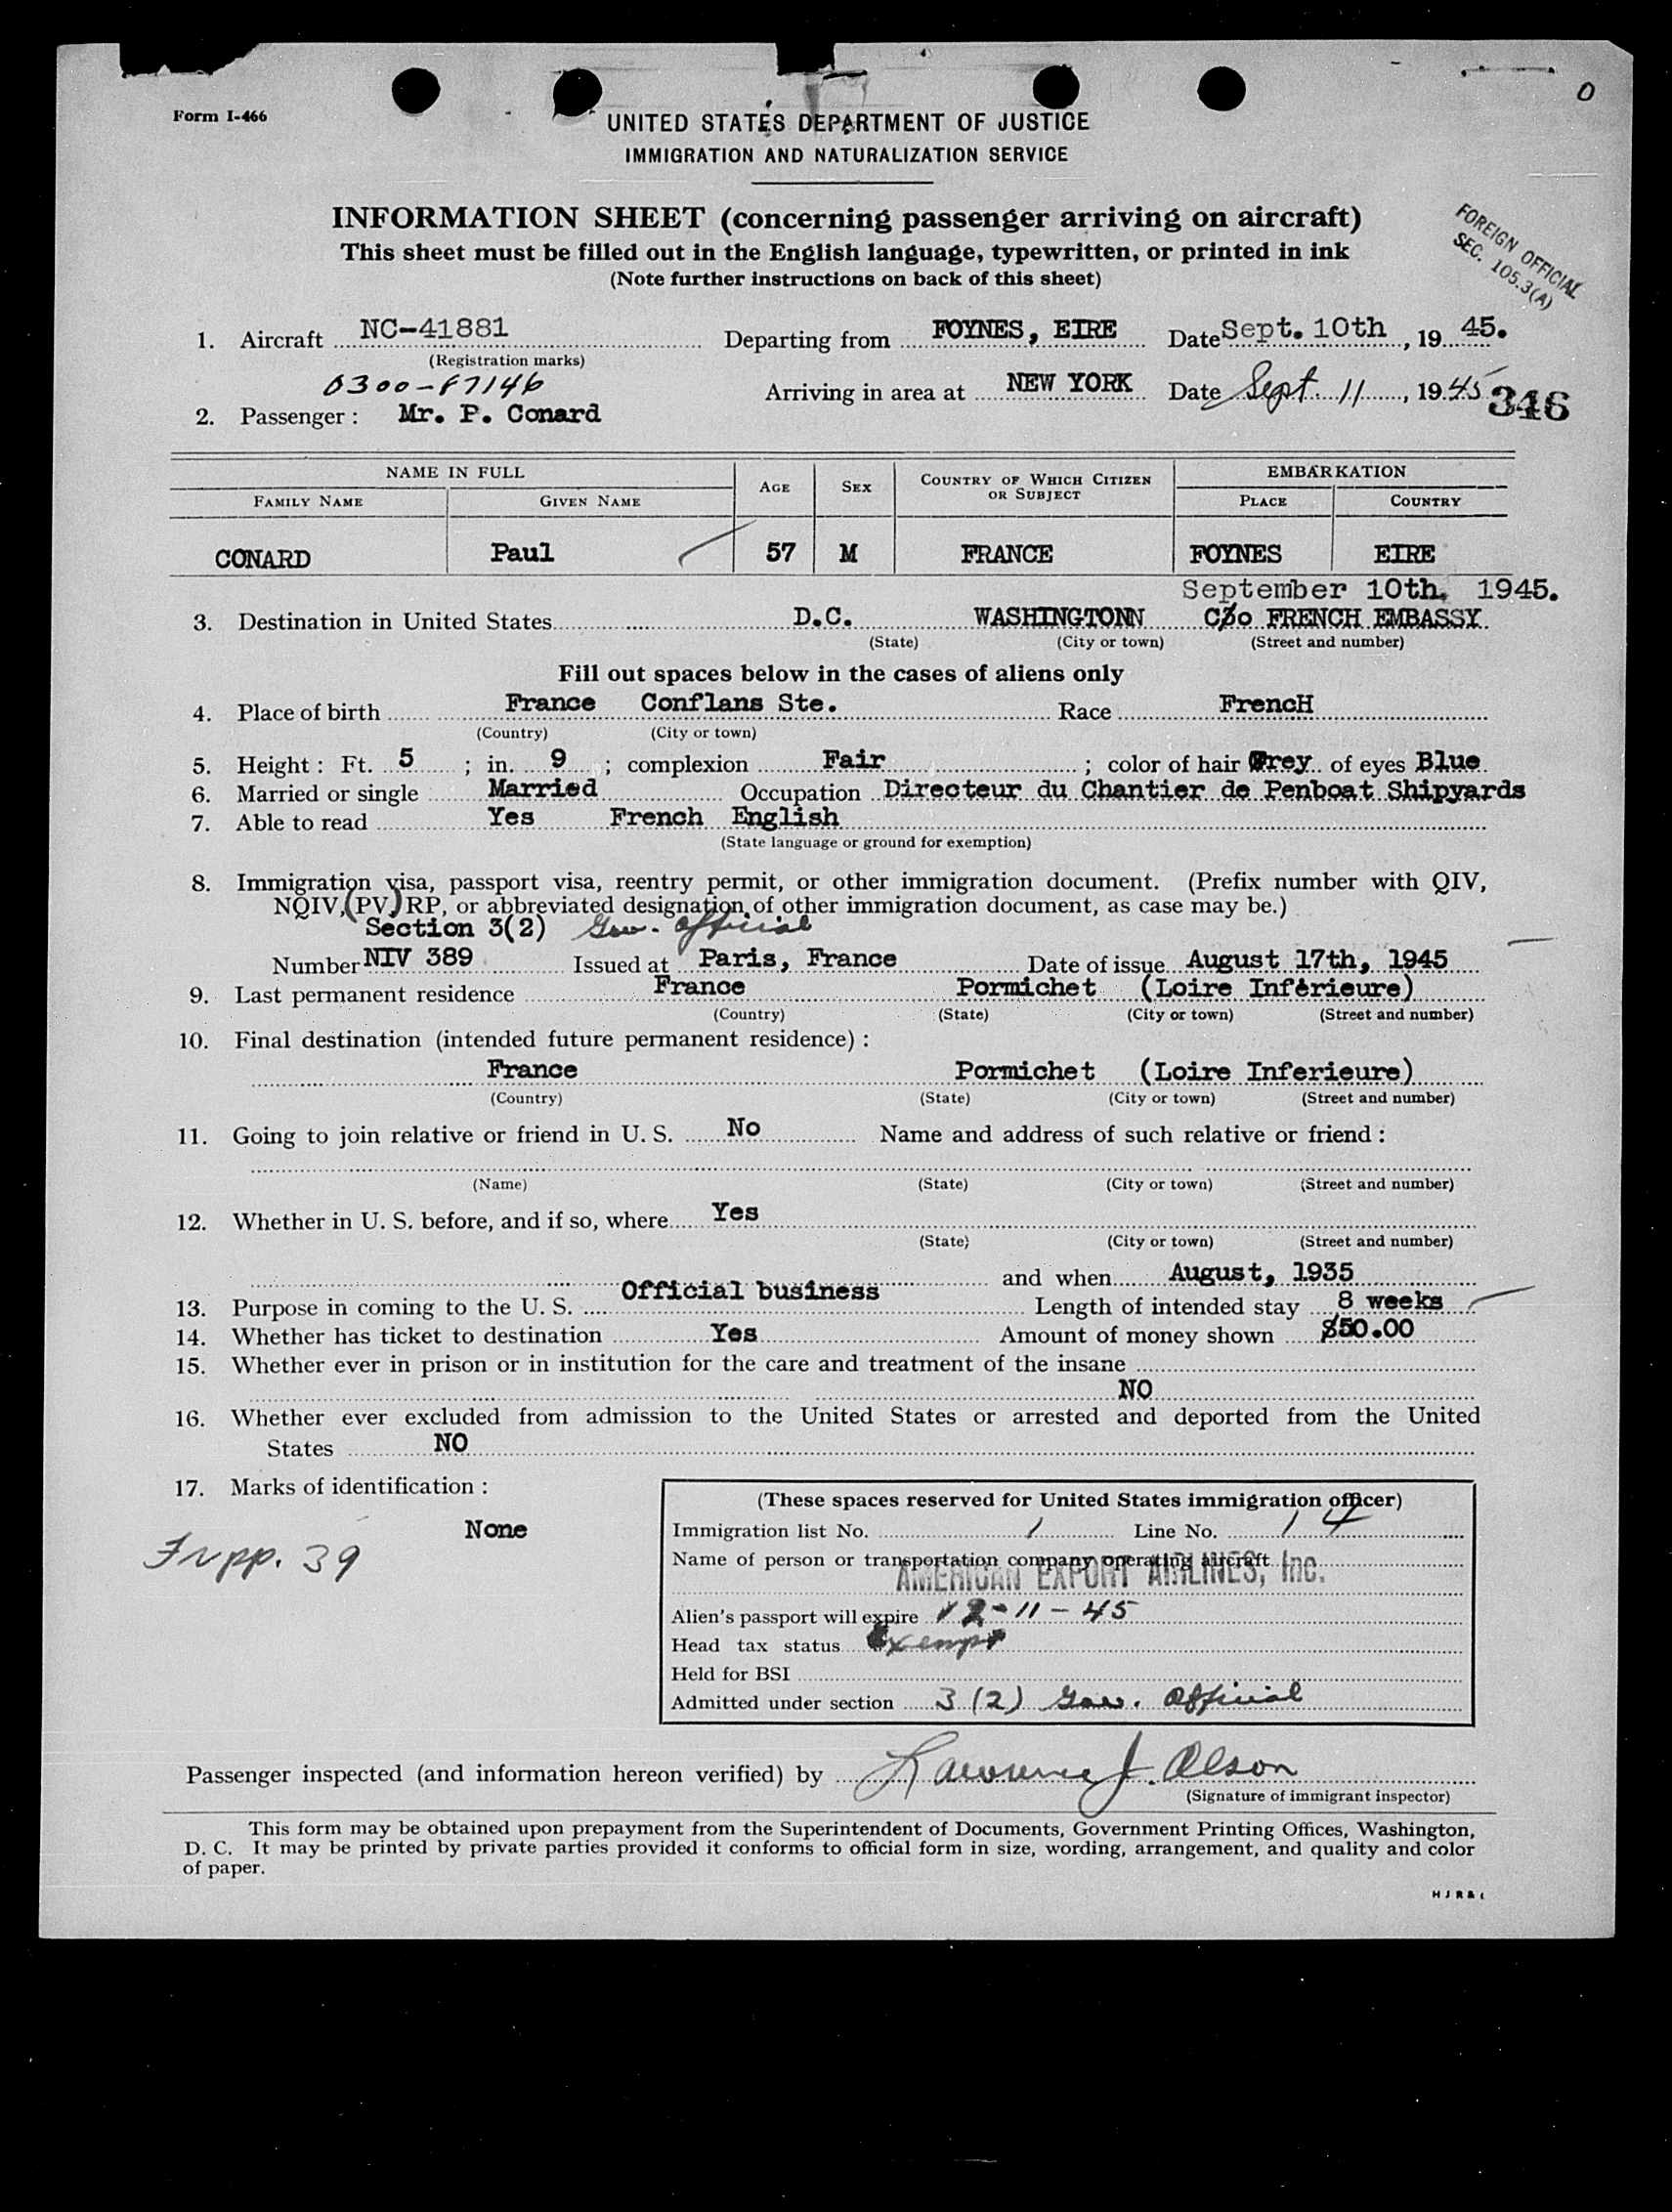 0
Form I-466
UNITED STATES DEPARTMENT OF JUSTICE
IMMIGRATION AND NATURALIZATION SERVICE
INFORMATION SHEET (concerning passenger arriving on aircraft)
This sheet must be filled out in the English language, typewritten, or printed in ink
(Note further instructions on back of this sheet)
FOREIGN OFFICIAL
SEC. 105.3(A)
1. Aircraft NC-41881 Departing from FOYNES, EIRE Date Sept. 10th, 1945.
(Registration marks)
0300-67146
Arriving in area at NEW YORK Date Sept. 11, 1945 346
2. Passenger: Mr. P. Conard
NAME IN FULL AGE SEX COUNTRY OF WHICH CITIZEN OR SUBJECT EMBARKATION
FAMILY NAME GIVEN NAME PLACE COUNTRY
CONARD Paul 57 M FRANCE FOYNES EIRE
September 10th, 1945.
3. Destination in United States D.C. WASHINGTONN C/o FRENCH EMBASSY
(State) (City or town) (Street and number)
Fill out spaces below in the cases of aliens only
4. Place of birth France Conflans Ste. Race FrencH
(Country) (City or town)
5. Height: Ft. 5; in. 9; complexion Fair; color of hair Grey of eyes Blue
6. Married or single Married Occupation Directeur du Chantier de Penboat Shipyards
7. Able to read Yes French English
(State language or ground for exemption)
8. Immigration visa, passport visa, reentry permit, or other immigration document. (Prefix number with QIV,
NQIV, (PV,) RP, or abbreviated designation of other immigration document, as case may be.)
Section 3(2) Gov. Official
Number NIV 389 Issued at Paris, France Date of issue August 17th, 1945
9. Last permanent residence France Pormichet (Loire Inférieure)
(Country) (State) (City or town) (Street and number)
10. Final destination (intended future permanent residence):
France Pormichet (Loire Inferieure)
(Country) (State) (City or town) (Street and number)
11. Going to join relative or friend in U. S. No Name and address of such relative or friend:
(Name) (State) (City or town) (Street and number)
12. Whether in U. S. before, and if so, where Yes
(State) (City or town) (Street and number)
and when August, 1935
13. Purpose in coming to the U. S. Official business Length of intended stay 8 weeks
14. Whether has ticket to destination Yes Amount of money shown $50.00
15. Whether ever in prison or in institution for the care and treatment of the insane
NO
16. Whether ever excluded from admission to the United States or arrested and deported from the United
States NO
17. Marks of identification:
None
39
(These spaces reserved for United States immigration officer)
Immigration list No. 1 Line No. 14
Name of person or transportation company operating aircraft
AMERICAN EXPORT AIRLINES, Inc.
Alien's passport will expire 12-11-45
Head tax status Exempt
Held for BSI
Admitted under section 3(2) Gov. Official
Passenger inspected (and information hereon verified) by Lawrence J. Olson
(Signature of immigrant inspector)
This form may be obtained upon prepayment from the Superintendent of Documents, Government Printing Offices, Washington,
D. C. It may be printed by private parties provided it conforms to official form in size, wording, arrangement, and quality and color
of paper.